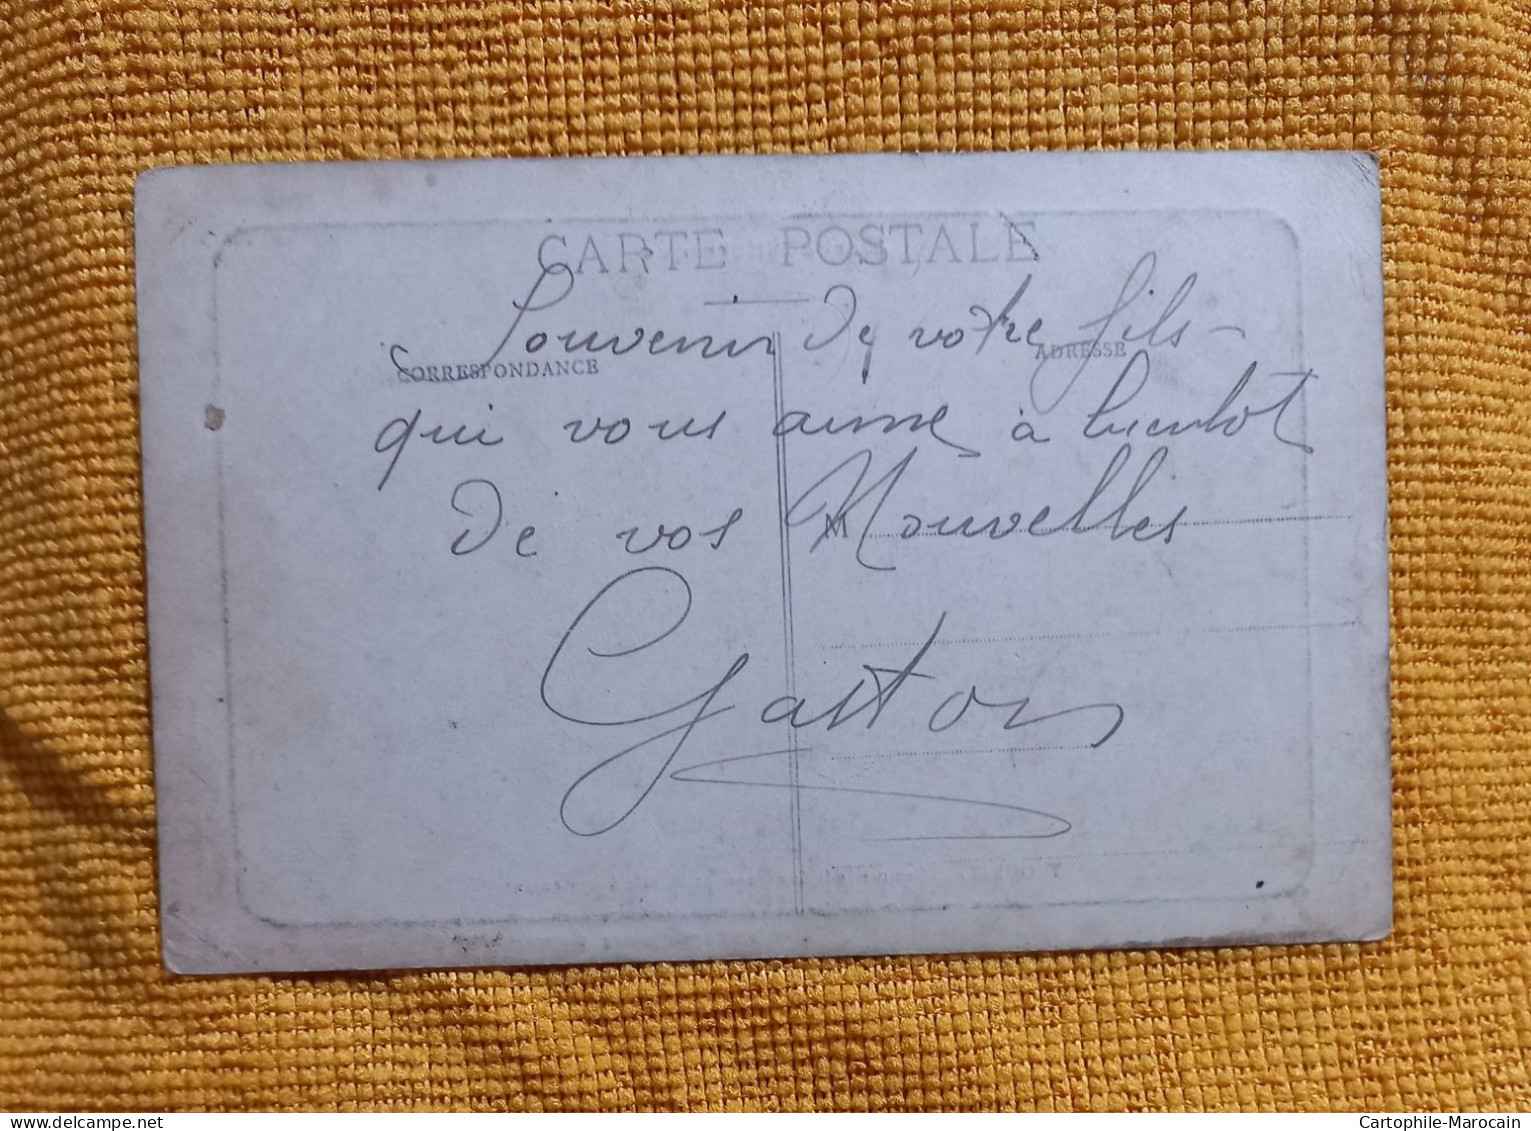 CARTE POSTALE
Souvenir de votre fils
CORRESPONDANCE
ADRESSE
qui vous aime à bientot
de vos Nouvelles
M
Gaston
Cartophile-Marocain